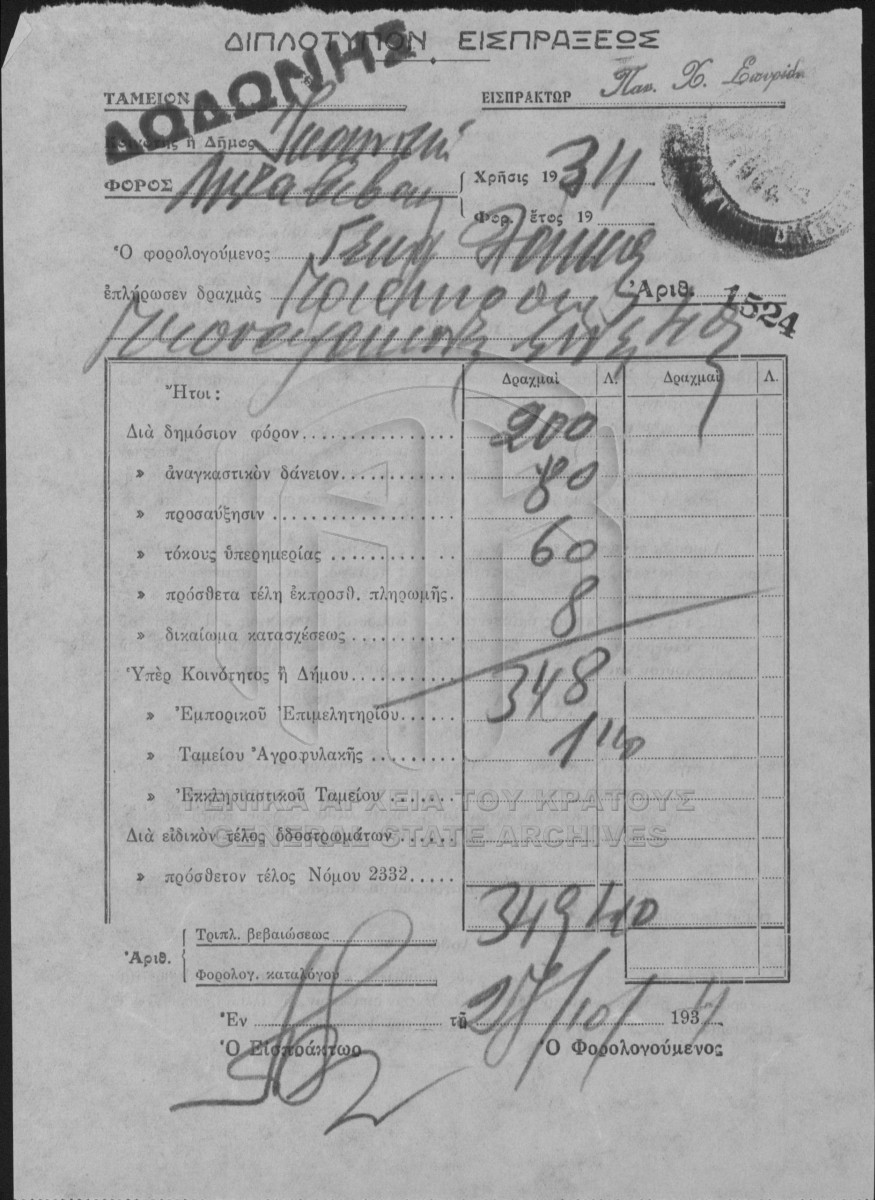 ΔΙΠΛΟΤΥΠΟΝ ΕΙΣΠΡΑΞΕΩΣ
ΤΑΜΕΙΟΝ ΔΩΔΩΝΗΣ
ΕΙΣΠΡΑΚΤΩΡ Παν. Χ.
Κοινότης ἢ Δῆμος
ΦΟΡΟΣ
Χρῆσις 1934
Φορ. ἔτος 19
Ὁ φορολογούμενος
ἐπλήρωσεν δραχμὰς
Ἀριθ. 1524
Ἤτοι: Δραχμαὶ Λ. Δραχμαὶ Λ.
Διὰ δημόσιον φόρον 200
» ἀναγκαστικὸν δάνειον 80
» προσαύξησιν
» τόκους ὑπερημερίας 60
» πρόσθετα τέλη ἐκπροσθ. πληρωμῆς. 8
» δικαίωμα κατασχέσεως
Ὑπὲρ Κοινότητος ἢ Δήμου 348
» Ἐμπορικοῦ Ἐπιμελητηρίου
» Ταμείου Ἀγροφυλακῆς 1 40
» Ἐκκλησιαστικοῦ Ταμείου
ΓΕΝΙΚΑ ΑΡΧΕΙΑ ΤΟΥ ΚΡΑΤΟΥΣ
GENERAL STATE ARCHIVES
Διὰ εἰδικὸν τέλος ὁδοστρωμάτων
» πρόσθετον τέλος Νόμου 2332
349 40
Ἀριθ.
Τριπλ. βεβαιώσεως
Φορολογ. καταλόγου
Ἐν τῇ 27/10/ 1934
Ὁ Εἰσπράκτωρ Ὁ Φορολογούμενος